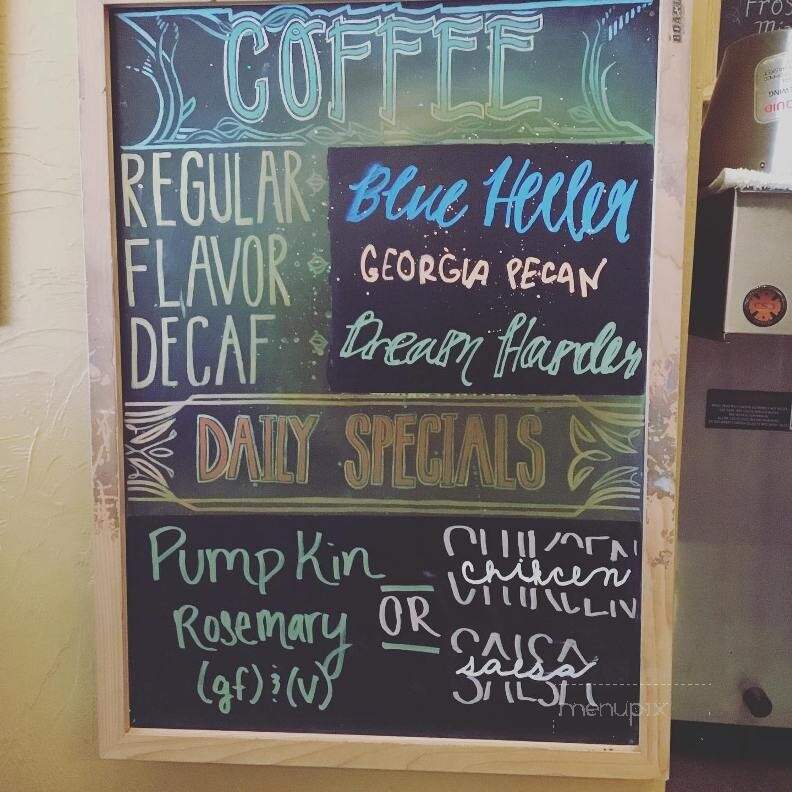 COFFEE
REGULAR Blue Heeler
FLAVOR GEORGIA PECAN
DECAF Dream Harder
DAILY SPECIALS
Pumpkin
Rosemary
(gf) & (v)
OR
CHICKEN
chikcen
SALSA
salsa
menupix